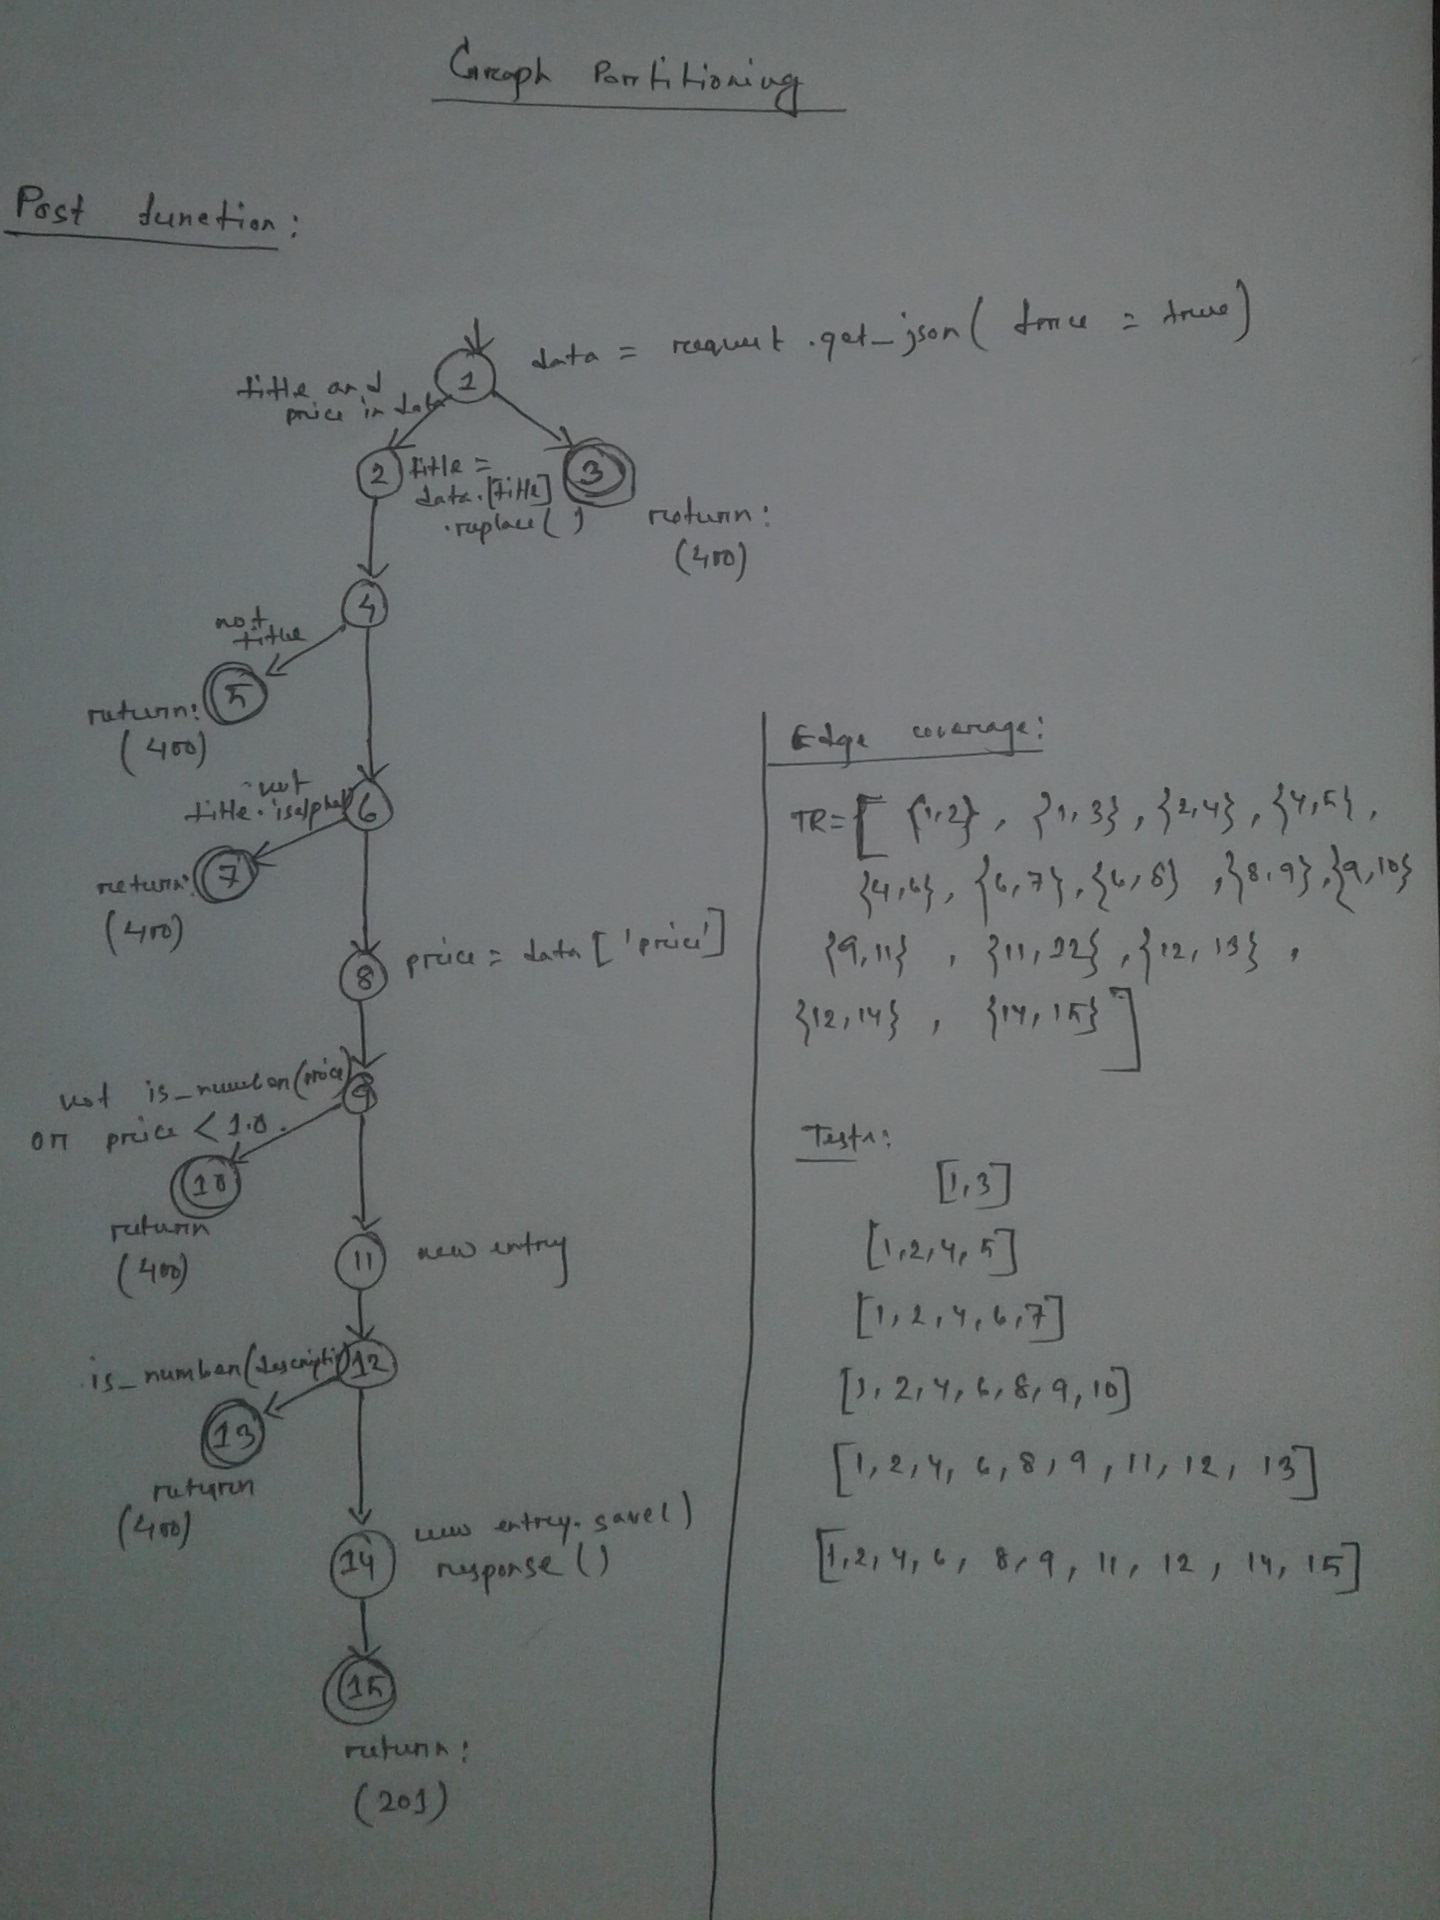 Graph Partitioning
Post function:
data = request.get_json( force = true)
title and
price in data
1
2
title =
data.[title]
.replace( )
3
return:
(400)
4
not
title
5
return:
(400)
not
title.isalpha
6
7
return:
(400)
8
price = data ['price']
not is_number(price)
or price < 1.0.
9
10
return
(400)
11
new entry
is_number(description)
12
13
return
(400)
14
new entry.save()
response ()
15
return:
(201)
Edge coverage:
TR=[ {1,2}, {1,3}, {2,4}, {4,5},
{4,6}, {6,7}, {6,8}, {8,9}, {9,10}
{9,11}, {11,12}, {12,13},
{12,14}, {14,15}]
Tests:
[1,3]
[1,2,4,5]
[1,2,4,6,7]
[1,2,4,6,8,9,10]
[1,2,4,6,8,9,11,12,13]
[1,2,4,6,8,9,11,12,14,15]